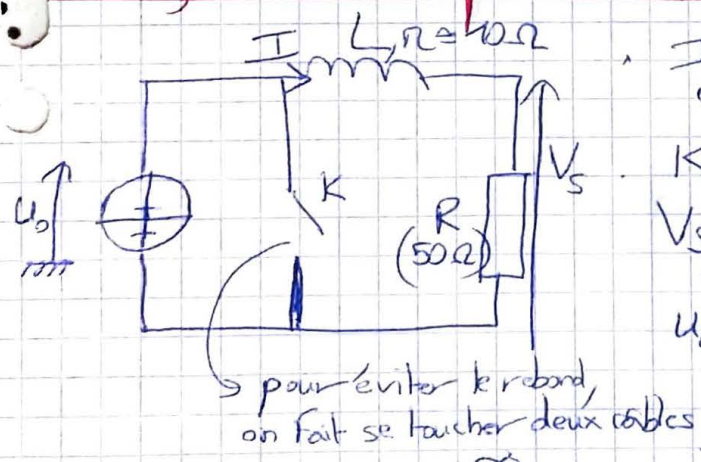 I L, r ≈ 10 Ω
K
u₀
Vₛ
R
(50Ω)
K
Vₛ
pour éviter le rebond,
on fait se toucher deux câbles